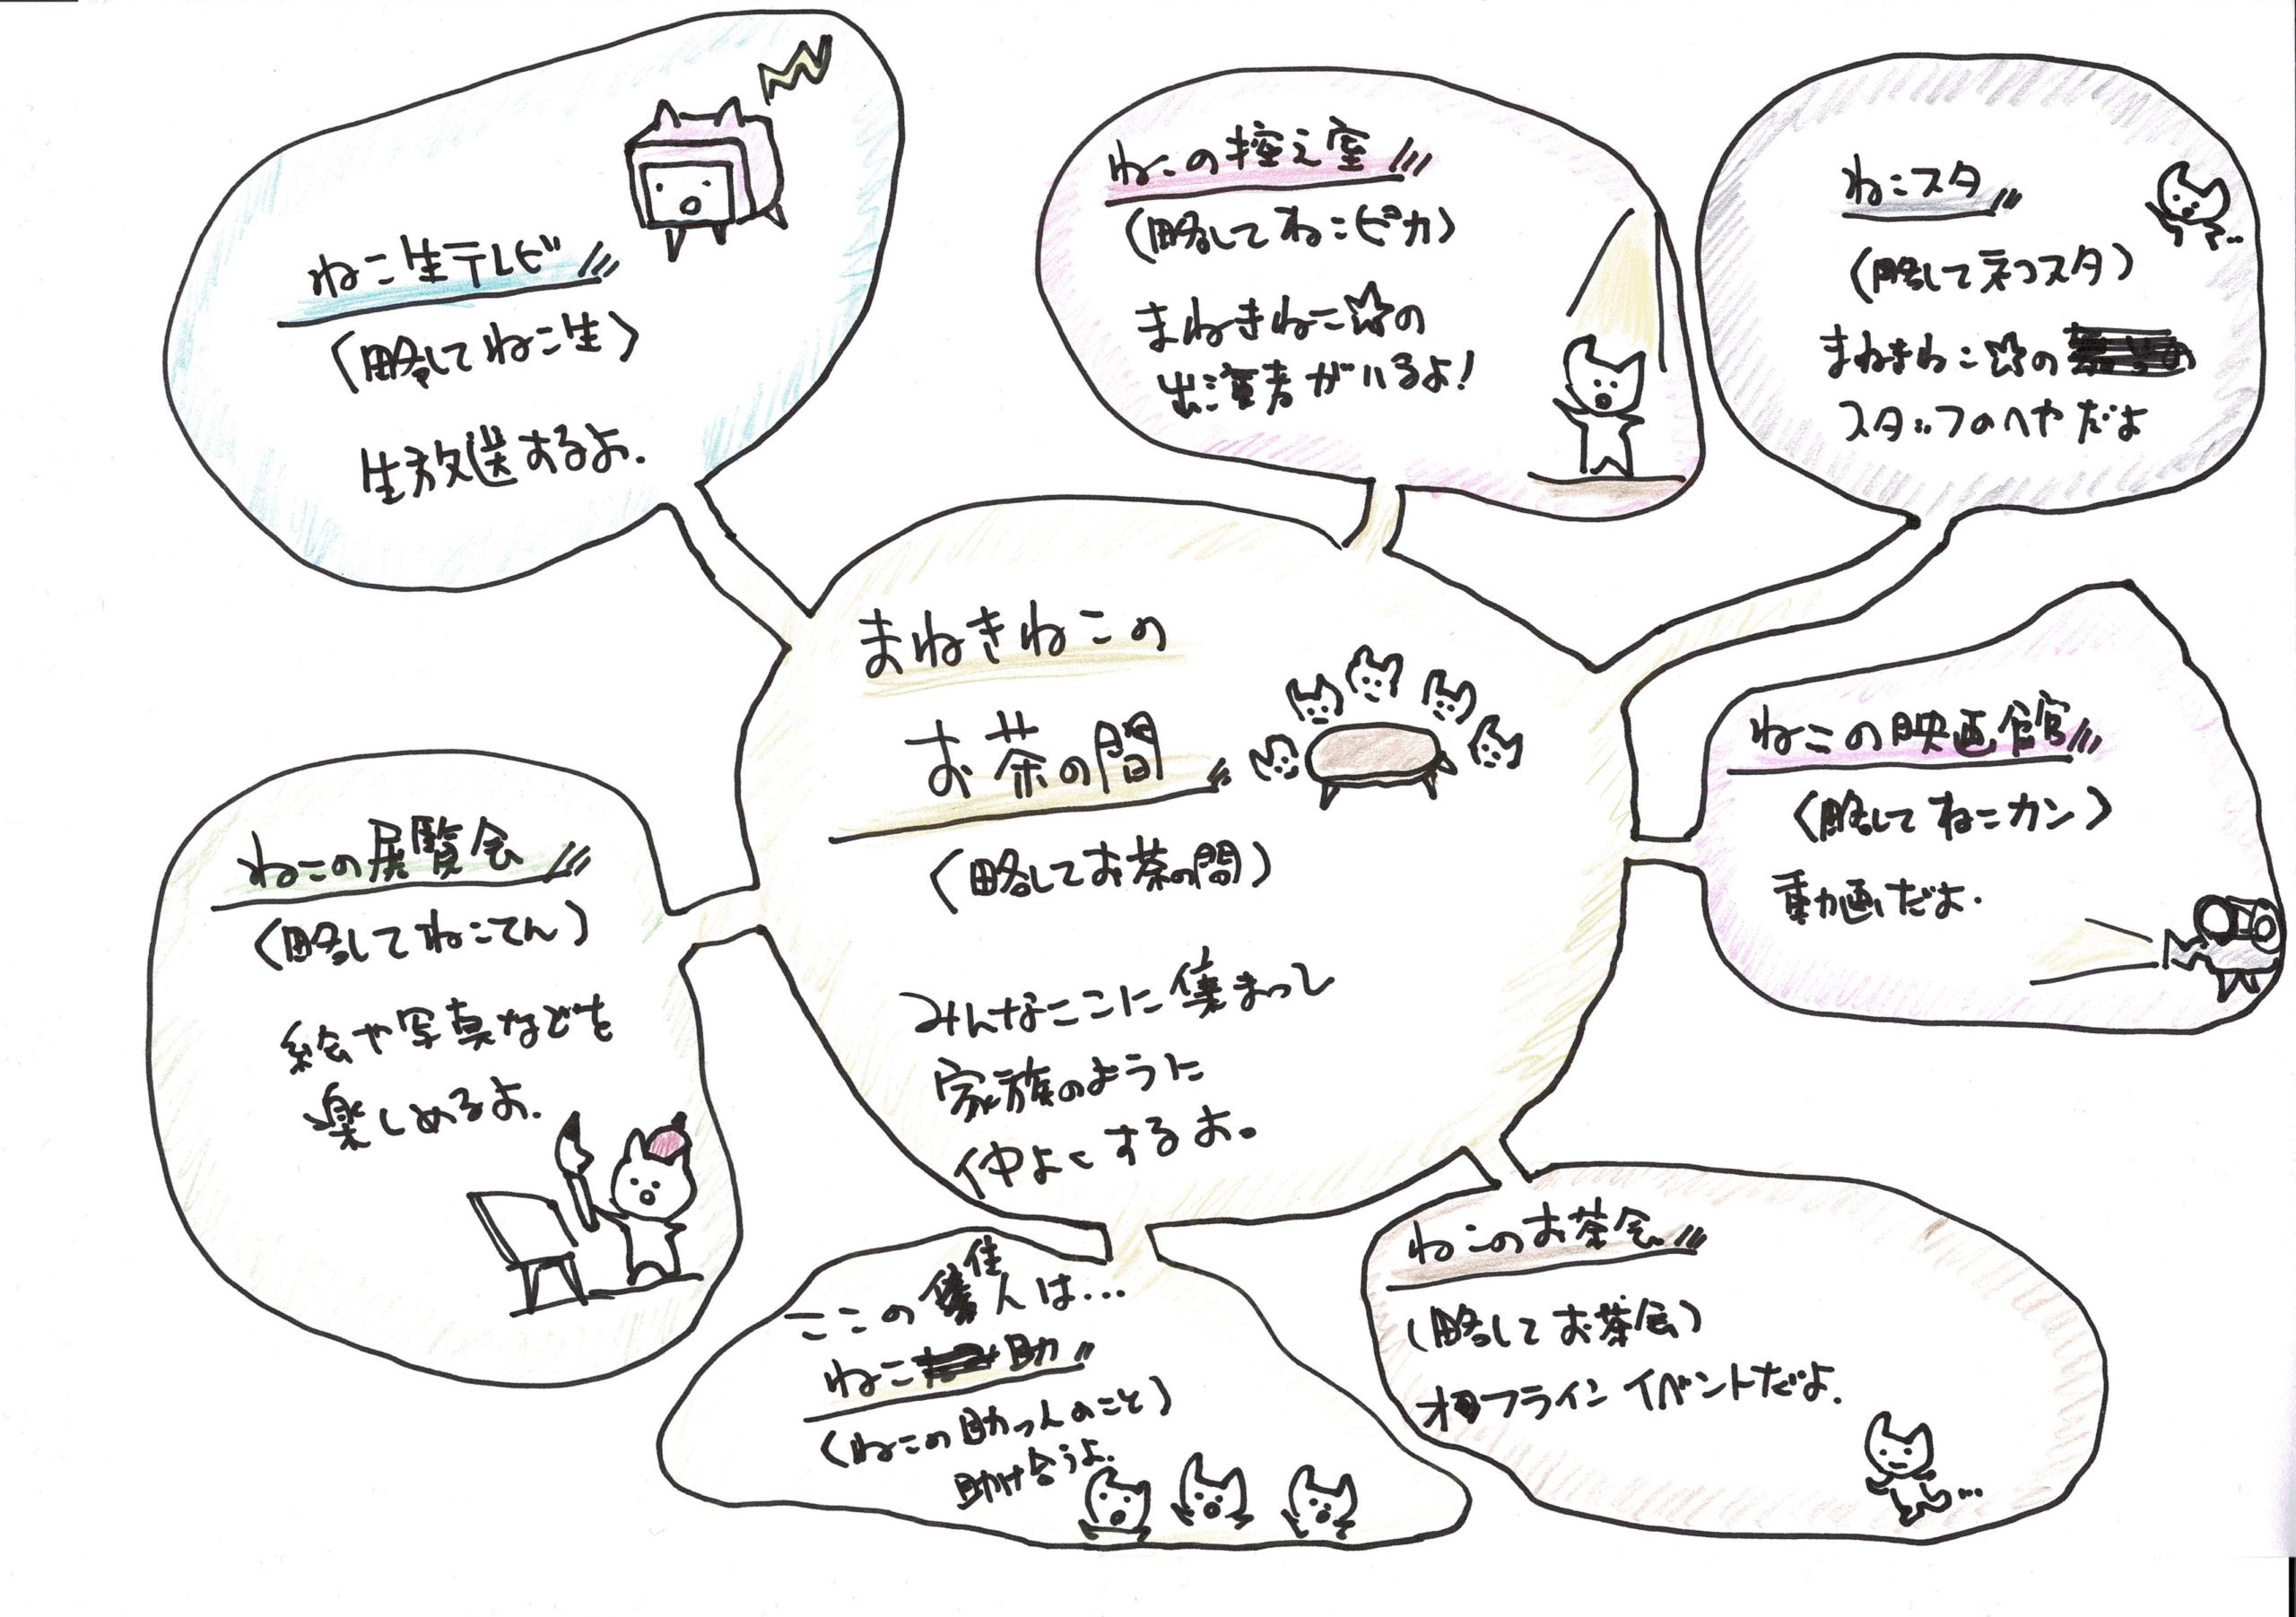 ねこ生テレビ
(略してねこ生)
生放送するよ.
ねこの控え室
(略してねこピカ)
まねきねこ☆の
出演者がいるよ!
ねこスタ
(略してネコスタ)
まねきねこ☆の
スタッフのへやだよ
まねきねこの
お茶の間
(略してお茶の間)
みんなここに集まって
家族のように
仲よくするよ。
ねこの映画館
(略してねこカン)
動画だよ.
ねこの展覧会
(略してねこてん)
絵や写真などを
楽しめるよ.
ここの住人は...
ねこ助
(ねこの助っ人のこと)
助け合うよ.
ねこのお茶会
(略してお茶会)
オフラインイベントだよ.